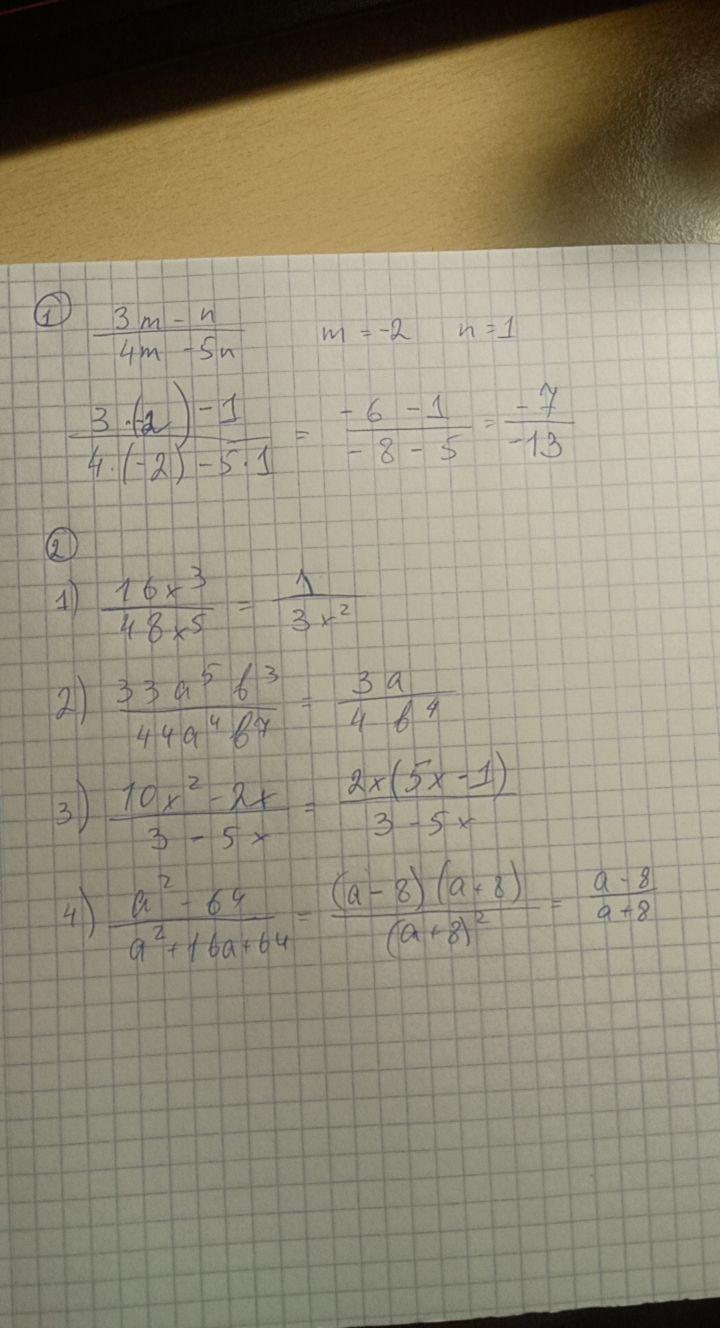 ① (3m - n)/(4m - 5n) m = -2 n = 1
(3·(-2) - 1)/(4·(-2) - 5·1) = (-6 - 1)/(-8 - 5) = (-7)/(-13)
②
1) 16x³/48x⁵ = 1/3x²
2) 33a⁵b³/44a⁴b⁷ = 3a/4b⁴
3) (10x² - 2x)/(3 - 5x) = 2x(5x - 1)/(3 - 5x)
4) (a² - 64)/(a² + 16a + 64) = (a - 8)(a + 8)/(a + 8)² = (a - 8)/(a + 8)